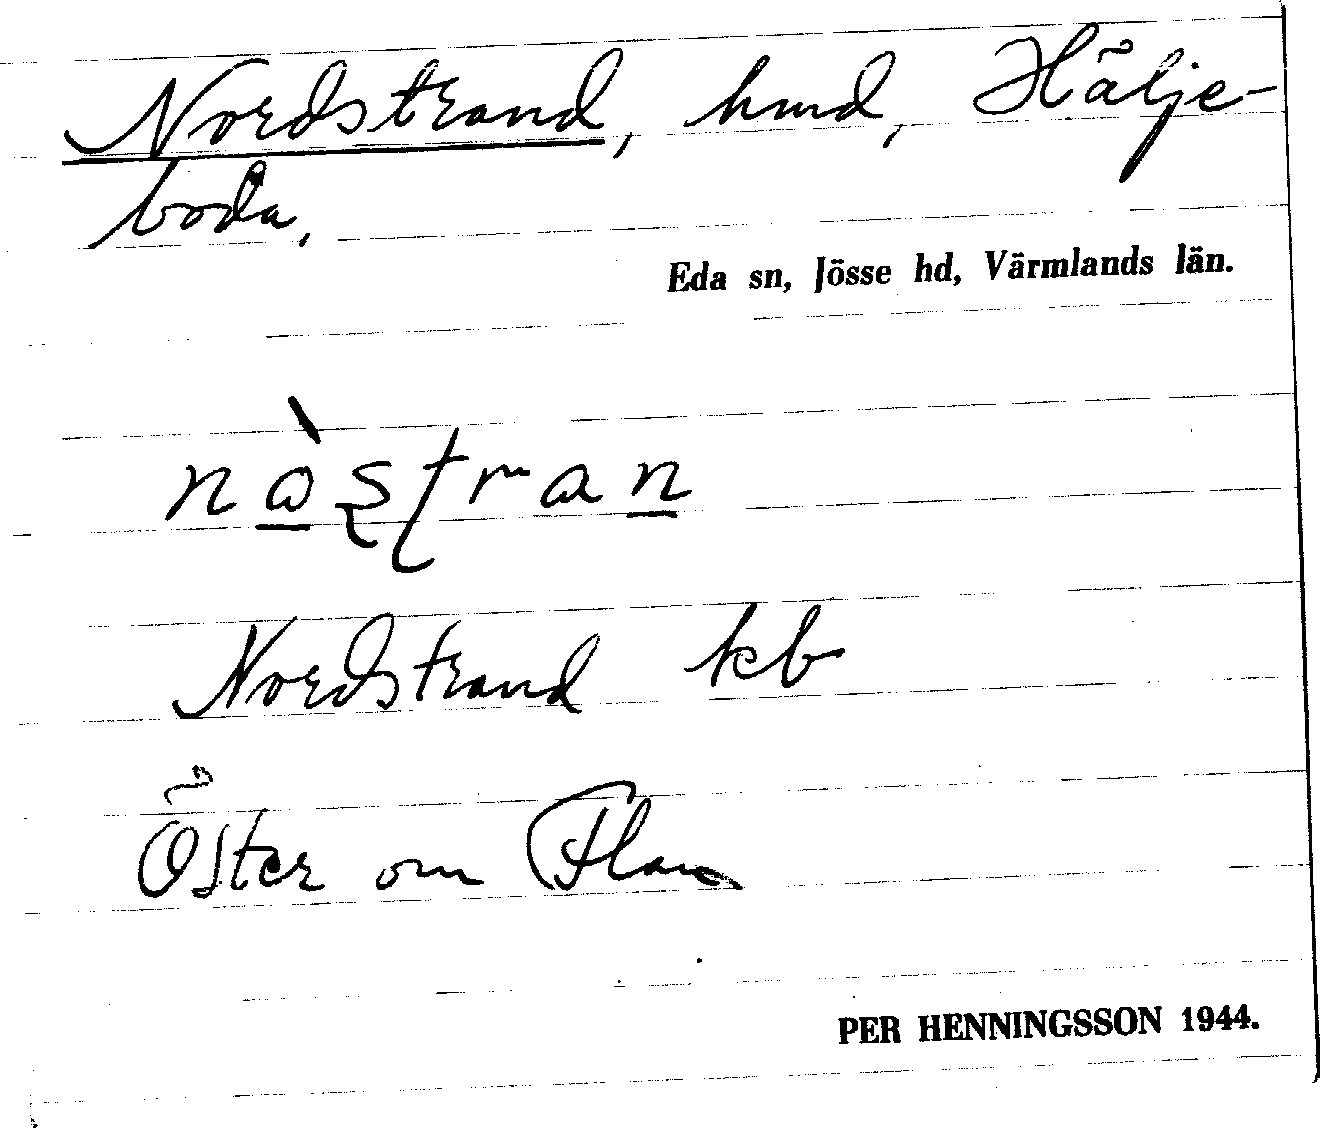 Nordstrand, hmd, Hälje-
boda,
Eda sn, Jösse hd, Värmlands län.
nò̱ʂʈran̲
Nordstrand kb
Öster om Flan
PER HENNINGSSON 1944.